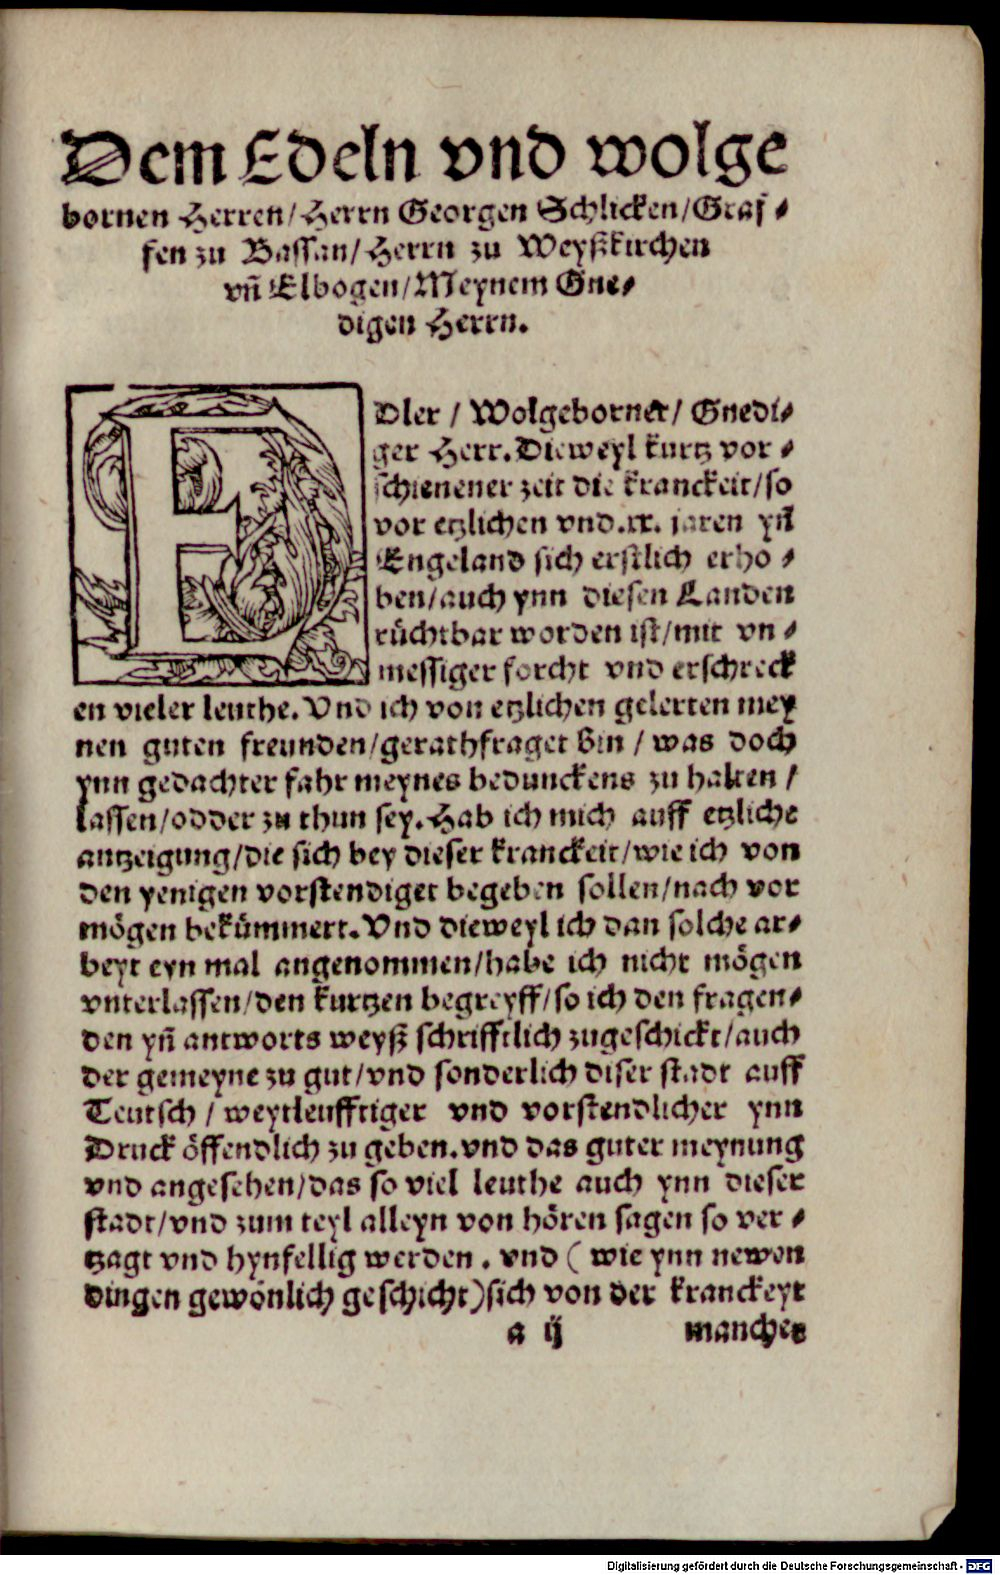 Dem Edeln vnd wolge
bornen Herren/Herrn Georgen Schlicken/Graf⸗
fen zu Bassan/Herrn zu Weyßkirchen
vñ Elbogen/Meynem Gne⸗
digen Herrn.
EDler / Wolgeborner/ Gnedi⸗
ger Herr. Dieweyl kurtz vor⸗
schienener zeit die kranckeit/so
vor etzlichen vnd .xx. jaren yñ
Engeland sich erstlich erho⸗
ben/auch ynn diesen Landen
rüchtbar worden ist/mit vn⸗
messiger forcht vnd erschreck
en vieler leuthe. Vnd ich von etzlichen gelerten mey
nen guten freunden/gerathfraget bin / was doch
ynn gedachter fahr meynes bedunckens zu halten /
lassen/odder zu thun sey. Hab ich mich auff etzliche
antzeigung/die sich bey dieser kranckeit/wie ich von
den yenigen vorstendiget begeben sollen/nach vor
mögen bekümmert. Vnd dieweyl ich dan solche ar⸗
beyt eyn mal angenommen/habe ich nicht mögen
vnterlassen/den kurtzen begreyff/so ich den fragen⸗
den yñ antworts weyß schrifftlich zugeschickt/auch
der gemeyne zu gut/vnd sonderlich diser stadt auff
Teutsch / weytleufftiger vnd vorstendlicher ynn
Druck öffendlich zu geben. vnd das guter meynung
vnd angesehen/das so viel leuthe auch ynn dieser
stadt/vnd zum teyl alleyn von hören sagen so ver⸗
tzagt vnd hynfellig werden . vnd ( wie ynn newen
dingen gewönlich geschicht) sich von der kranckeyt
a ij manches
Digitalisierung gefördert durch die Deutsche Forschungsgemeinschaft - DFG